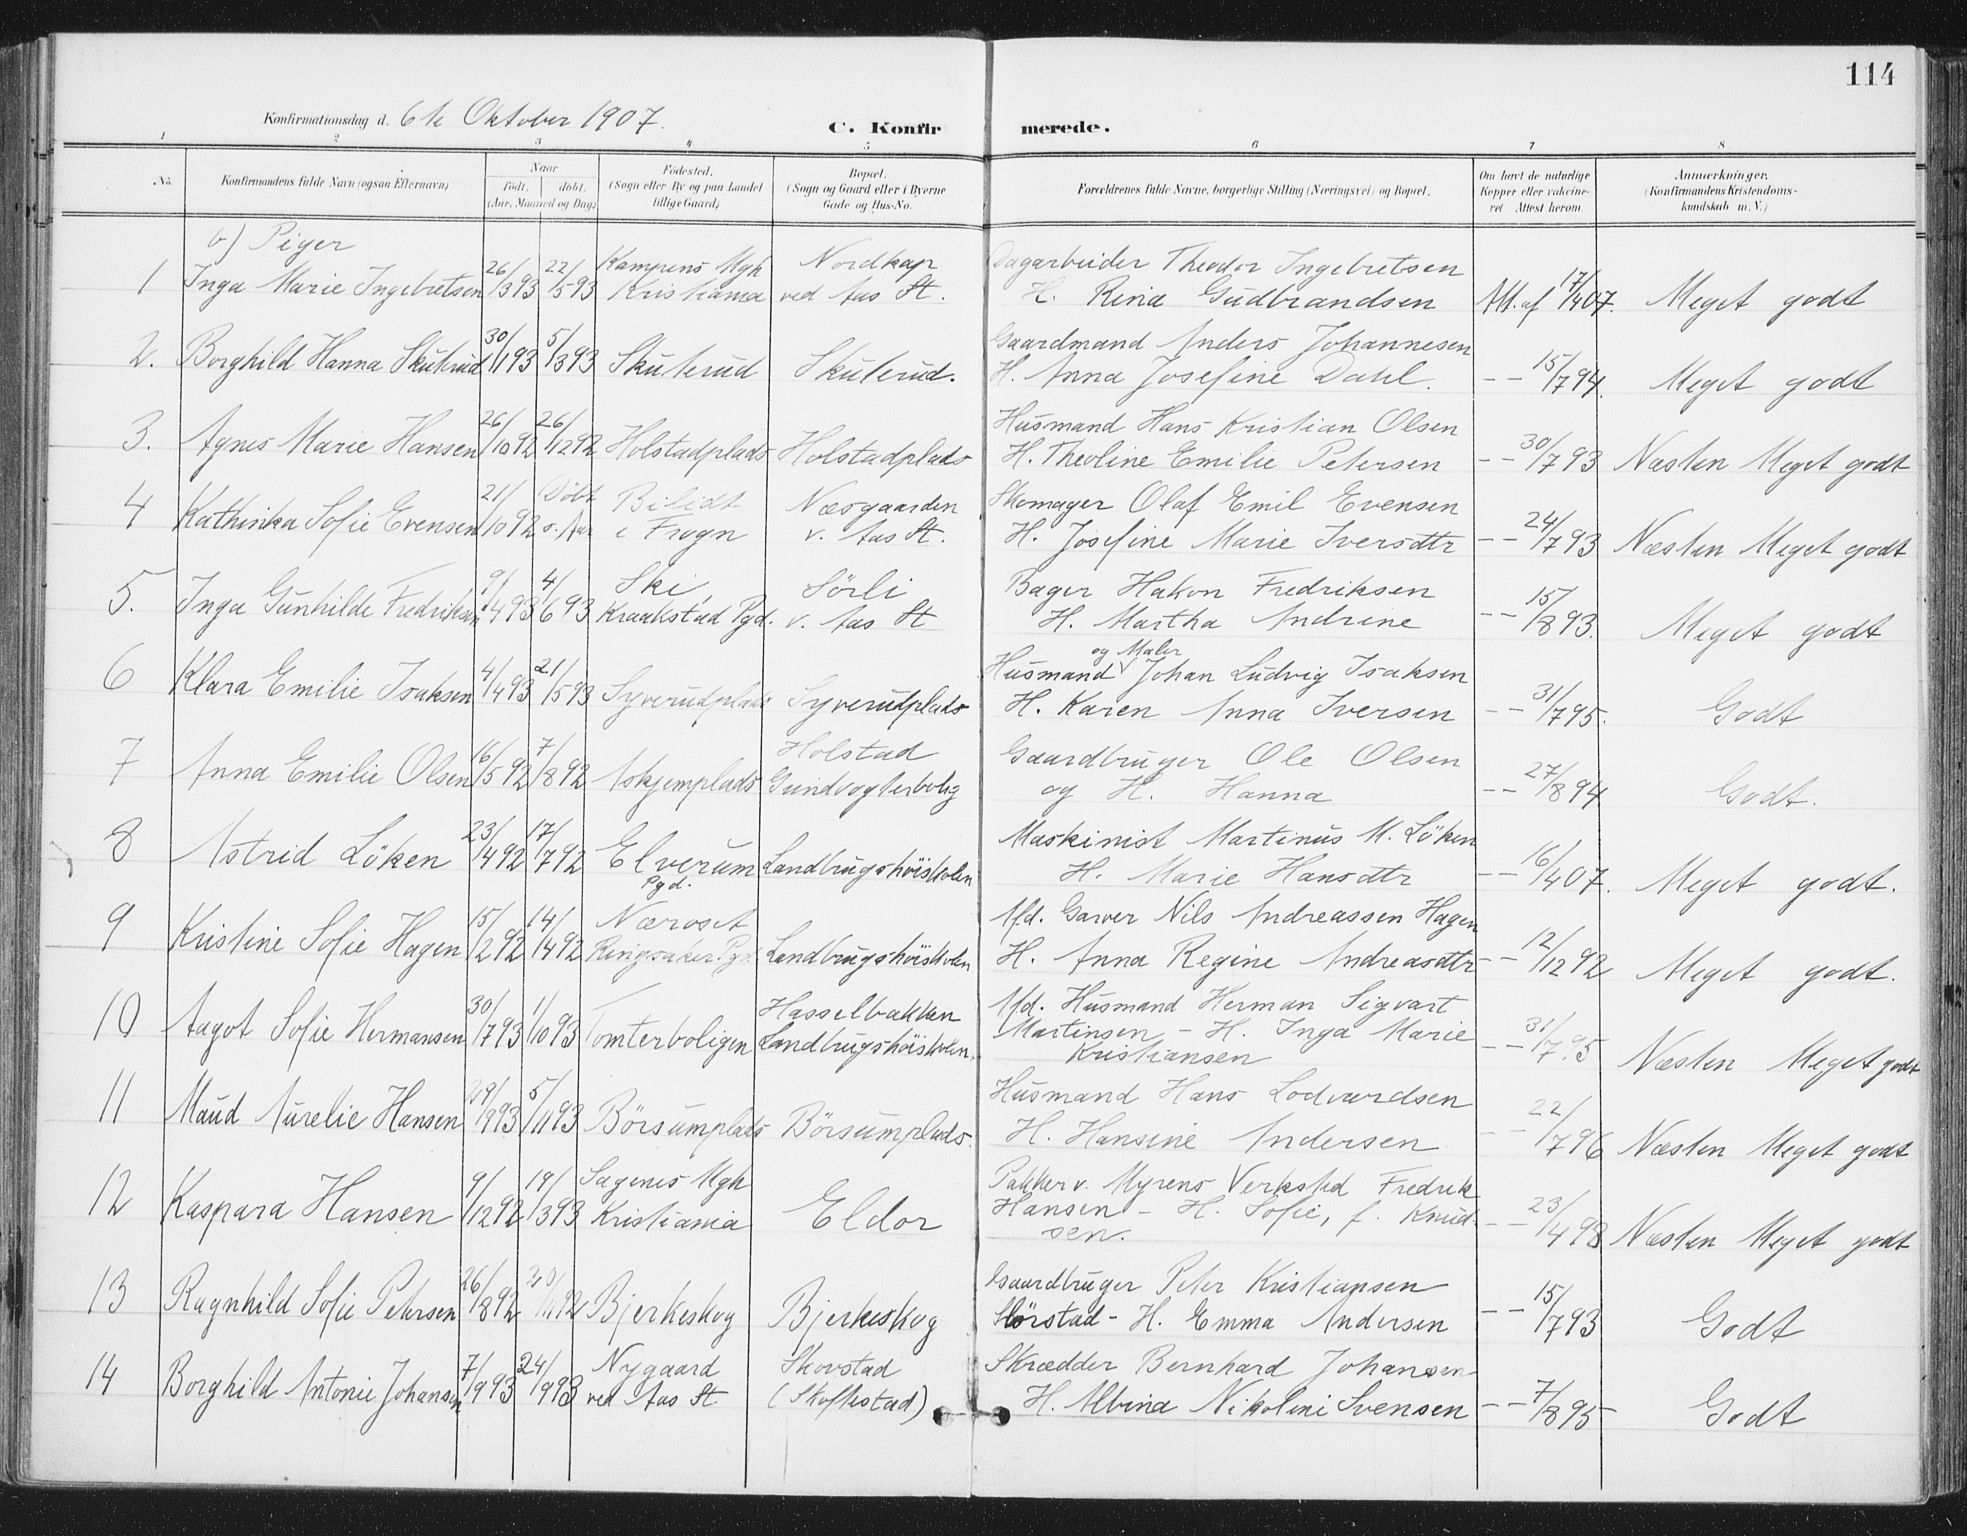 114
Konfirmationsdag d. 6te Oktober 1907.
C. Konfirmerede.
1 2 3 4 5 6 7 8
No. Konfirmandens fulde Navn (ogsaa Efternavn) Naar født. døbt. (Aar, Maaned og Dag) Födested. (Sogn eller By og paa Landet tillige Gaard) Bopæl. (Sogn og Gaard eller i Byerne Gade og Hus-No. Forældrenes fulde Navne, borgerlige Stilling (Næringsvei) og Bopæl. Om havt de naturlige Kopper eller vakcineret Attest herom. Anmærkninger. (Konfirmandens Kristendomskundskab m. V.)
b) Piger
1 Inga Marie Ingebretsen 26/393 22/593 Kampens Mgh Kristiania Nordkap ved Aas St. Dagarbeider Theodor Ingebretsen H. Rina Gudbrandsen Att. af 17/407. Meget godt
2. Borghild Hanna Skuterud 30/193 5/393 Skuterud Skuterud. Gaardmand Anders Johannesen H. Anna Josefine Dahl. -- 15/794. Meget godt
3. Agnes Marie Hansen 26/1092 26/1292 Holstadplads Holstadplads Husmand Hans Kristian Olsen H. Theoline Emilie Petersen -- 30/793 Næsten Meget godt
4 Kathinka Sofie Evensen 21/1092 Döbt s. Aar Bilidt i Frogn Næsgaarden v. Aas St. Skomager Olaf Emil Evensen H. Josefine Marie Iversdtr -- 24/793 Næsten Meget godt
5. Inga Gunhilde Fredriksen 9/493 4/693 Ski Kraakstad Pgd. Sörli v. Aas St Bager Hakon Fredriksen H. Martha Andrine -- 15/893. Meget godt
6 Klara Emilie Isaksen 4/493 21/593 Syverudplads Syverudplads Husmand og Maler Johan Ludvig Isaksen H. Karen Anna Iversen -- 31/795. Godt
7 Anna Emilie Olsen 16/592 7/892 Askjemplads Holstad Grindvogterbolig Gaardbruger Ole Olsen og H. Hanna -- 27/894 Godt.
8 Astrid Löken 23/492 17/792 Elverum Pgd. Landbrugshöiskolen Maskinist Martinus M. Löken H. Marie Hansdtr -- 16/407. Meget godt.
9 Kristine Sofie Hagen 15/292 14/492 Næroset Ringsaker Pgd. Landbrugshöiskolen Afd. Garver Nils Andreassen Hagen H. Anna Regine Andreasdtr -- 12/1292 Meget godt.
10 Aagot Sofie Hermansen 30/793 1/1093 Tomterboligen Hasselbakken Landbrugshöiskolen. Afd. Husmand Herman Sigvart Martinsen - H. Inga Marie Kristiansen -- 31/795 Næsten Meget godt
11 Maud Aurelie Hansen 19/993 5/1193 Börsumplads Börsumplads. Husmand Hans Lodvardsen H. Hansine Andersen -- 22/796 Næsten Meget godt
12 Kaspara Hansen 9/1292 19/393 Sagenes Mgh Kristiania Eldor Pakker v. Myrens Verksted Fredrik Hansen - H. Sofie, f. Knudsen. -- 23/498 Næsten Meget godt
13 Ragnhild Sofie Petersen 26/892 /1192 Bjerkeskog Bjerkeskog Gaardbruger Peter Kristiansen Slörstad - H. Emma Andersen -- 15/793 Godt
14 Borghild Antonie Johansen 7/993 24/993 Nygaard ved Aas St Skovstad (Skoftestad) Skrædder Bernhard Johansen H. Albina Nikoline Svensen -- 7/895 Godt